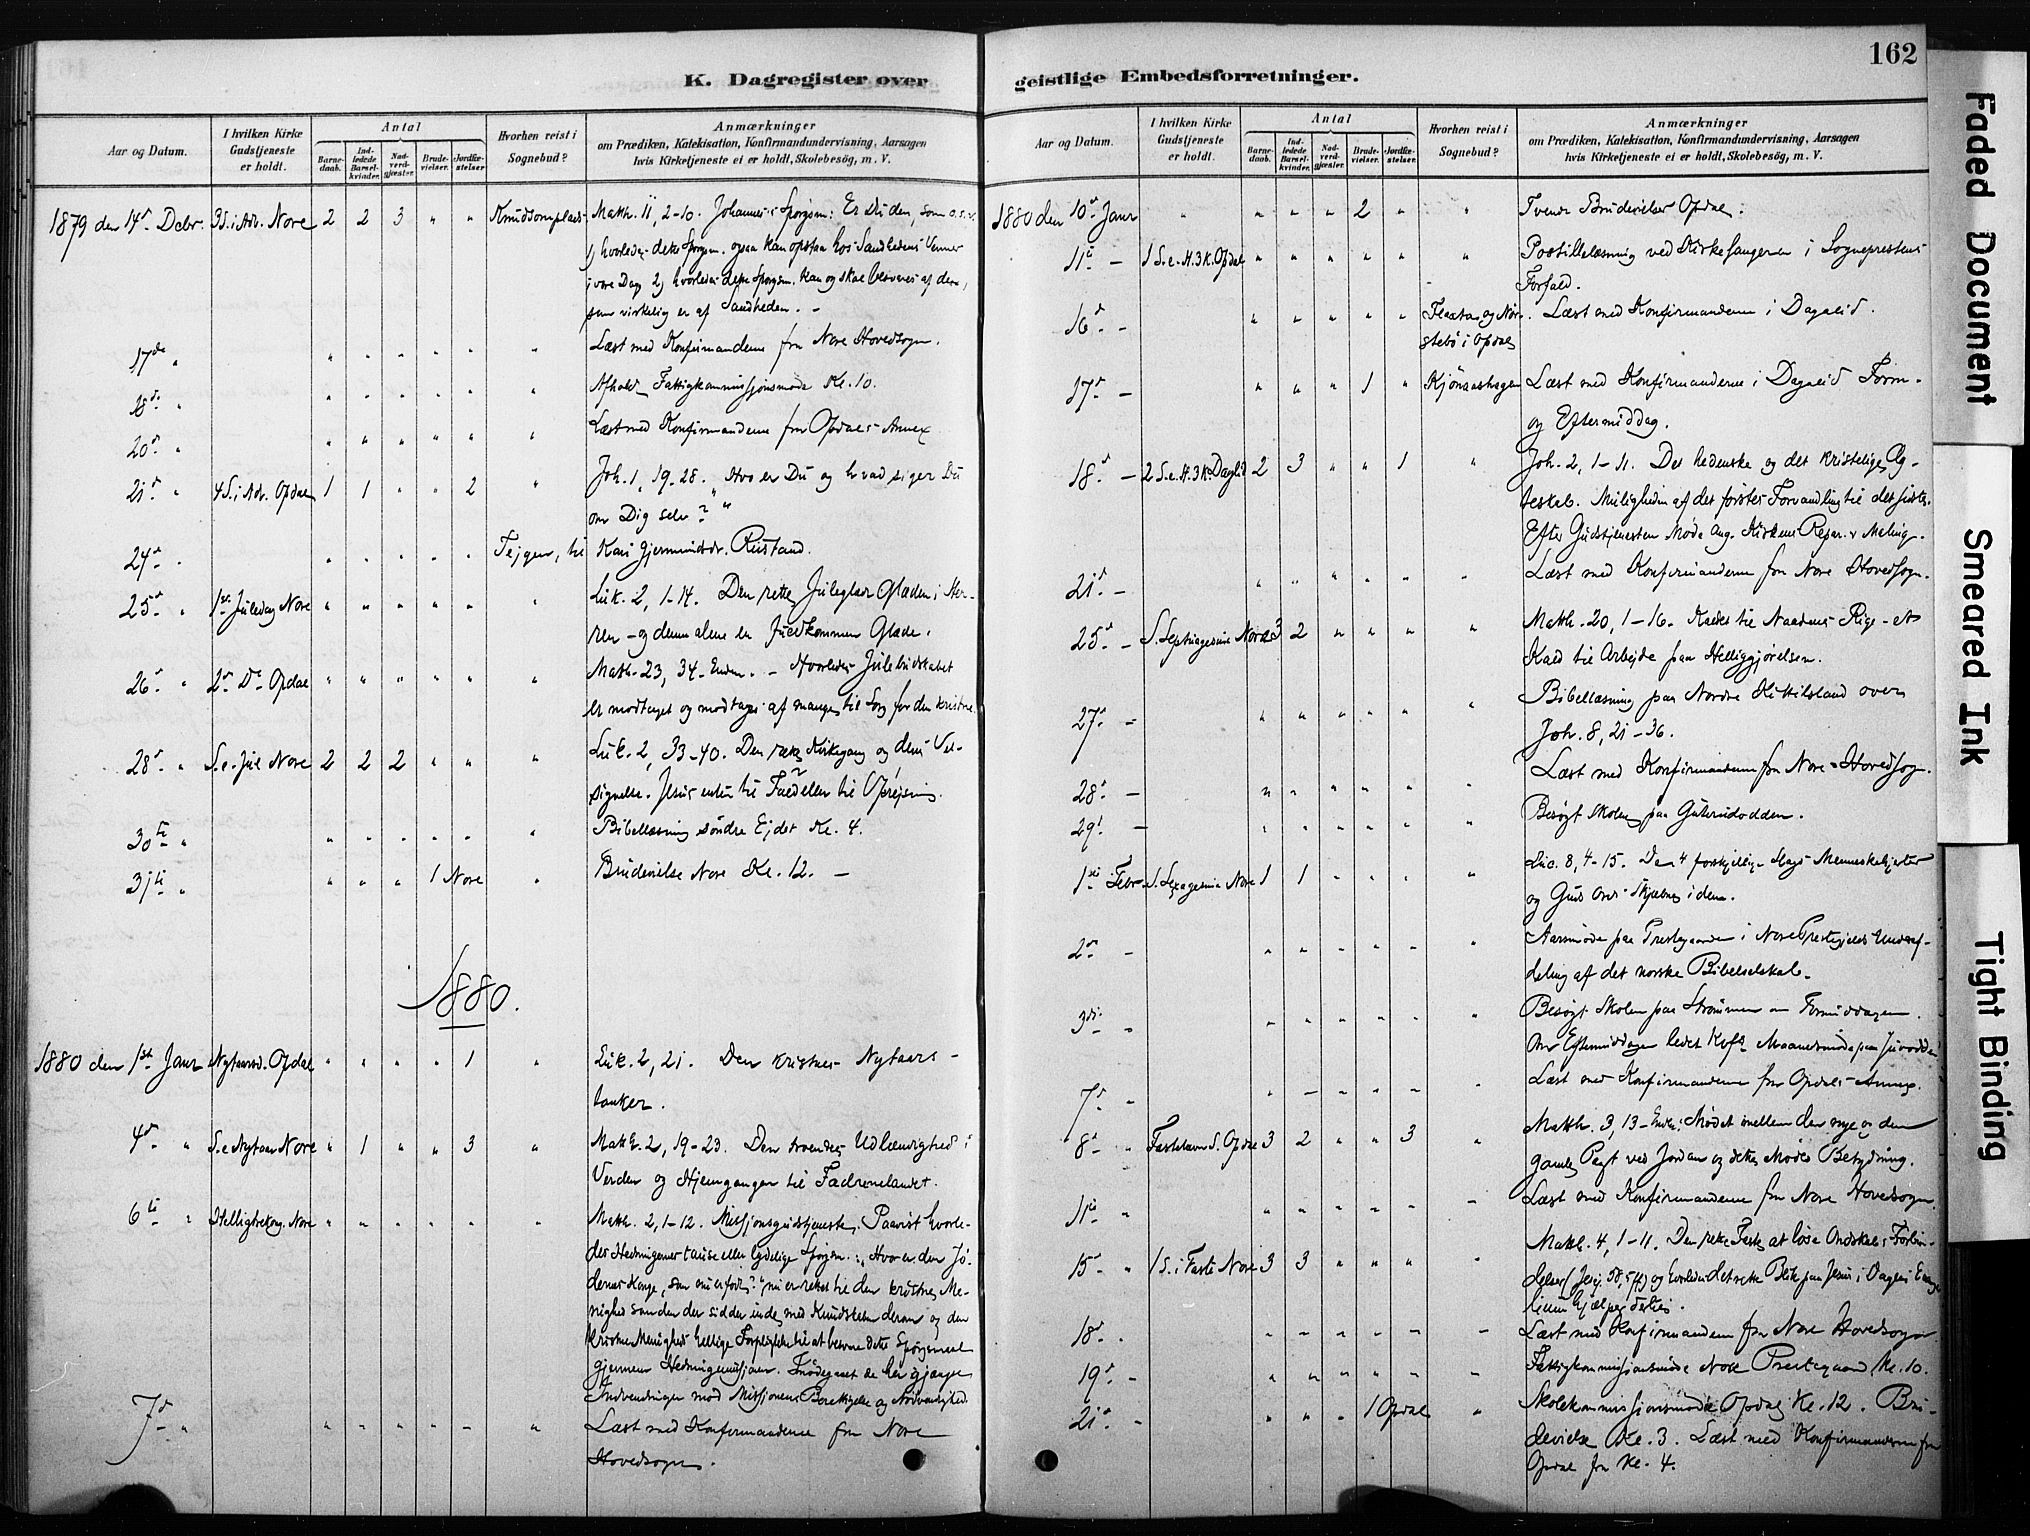 K. Dagregister over
Aar og Datum.
I hvilken Kirke Gudstjeneste er holdt.
Antal
Barnedaab.
Indledede Barselkvinder.
Nadverdgjæster.
Brudevielser.
Jordfæstelser
Hvorhen reist i Sognebud?
Anmærkninger
om Prædiken, Katekisation, Konfirmandundervisning, Aarsagen
hvis Kirketjeneste ei er holdt, Skolebesög, m. V.
1879 den 14de Debr. 3 S. i Adv. Nore 2 2 3 " " Knudsomplads Matth. 11, 2-10. Johannes's Spørgsm: Er Du den, som o.s.v.
1, hvorledes dette Spørgsm. ogsaa kan opstaa hos Sandhedens Venner
i vore Dage 2, hvorledes dette Spørgsm. kan og skal besvares af dem,
som virkelig er af Sandheden. -
17de " Læst med Konfirmanderne fra Nore Hovedsogn.
18de " Afholdt Fattigkommissjonsmøde Kl. 10.
20de " Læst med Konfirmanderne fra Opdals Annex
21de " 4 S. i Adv. Opdal 1 1 " " 2 " Joh. 1, 19-28. "Hvo er Du og hvad siger Du
om Dig selv?"
24de " Tejgen, til Kari Gjermundsdr. Ristand.
25de " 1ste Juledag Nore Luk. 2, 1-14. Den rette Juleglæde Glæden i Her-
ren - og denne alene er fuldkommen Glæde.
26de " 2den Do Opdal Matth. 23, 34-Enden. - Hvorledes Julebudskabet
er modtaget og modtages af mange, til Sorg for den kristne.
28de " S. e. Jul Nore 2 2 2 " " " Luk. 2, 33-40. Den rette Kirkegang og dens Vel-
signelse. Jesus enten til Fald eller til Oprejsning.
30te " Bibellæsning søndre Ejdet Kl. 4.
31te " " " " 1 Nore " Brudevielse Nore Kl. 12. -
1880.
1880 den 1ste Janr Nytaarsd. Opdal " " " " 1 " Luk. 2, 21. Den kristnes Nytaars-
tanker.
4de " S. e. Nytaar Nore " 1 " " 3 " Matth. 2, 19-23. Den troendes Udlændighed i
Verden og Hjemgangen til Fædrenelandet.
6te " Helligtrekong. Nore Matth. 2, 1-12. Missjonsgudstjeneste. Paavist hvorle-
des Hedningernes tause eller lydelige Spørgsm.: "Hvor er den Jø-
dernes Konge, som nu er født?" nu er rettet til den kristne Me-
nighed som den der sidder inde med Kundskaben derom og den
kristne Menigheds hellige Forpligtelse til at besvare dette Spørgsmaal
gjennem Hedningemissjonen. Imødegaaet de her gjængse
Indvendinger mod Missjonens Berettigelse og Nødvendighed.
7de " Læst med Konfirmanderne fra Nore
Hovedsogn.
geistlige Embedsforretninger.
162
Aar og Datum.
I hvilken Kirke Gudstjeneste er holdt.
Antal
Barnedaab.
Indledede Barselkvinder.
Nadverdgjæster.
Brudevielser.
Jordfæstelser.
Hvorhen reist i Sognebud?
Anmærkninger
om Prædiken, Katekisation, Konfirmandundervisning, Aarsagen
hvis Kirketjeneste ei er holdt, Skolebesög, m. V.
1880 den 10de Janr " " " " 2 " " Tvende Brudevielser Opdal.
11te - 1 S. e. H. 3 K. Opdal Postillelæsning ved Kirkesangeren i Sogneprestens
Forfald.
16de - Flaata og Nør-
stebö i Opdal Læst med Konfirmanderne i Dagalid.
17de - " " " 1 " Kjönaashagen Læst med Konfirmanderne i Dagalid Form-
og Eftermiddag.
18de - 2 S. e. H. 3 K. Daglid 2 3 " " 1 " Joh. 2, 1-11. Det hedenske og det kristelige Æg-
teskab. Muligheden af det førstes Forvandling til det sidste.
Efter Gudstjenesten Møde ang. Kirkens Repar. & Maling.
21de - Læst med Konfirmanderne fra Nore Hovedsogn.
25de - S. Septuagesima Nore 3 2 " " " " Matth. 20, 1-16. Kaldet til Naadens Rige - et
Kald til Arbejde paa Helliggjørelsen.
27de - Bibellæsning paa Nordre Kittilsland over
Joh. 8, 21-36.
28de - Læst med Konfirmanderne fra Nore Hovedsogn.
29de - Besøgt Skolen paa
1ste Febr. S. Sexagesima Nore 1 1 " " " " Luc. 8, 4-15. De 4 forskjellige Slags Menneskehjerter
og Guds Ords Skjæbne i dem.
2den - Aarsmøde paa Prestegaarden i Nore Prestegjelds Underaf-
deling af det norske Bibelselskab.
3die - Besøgt Skolen paa Strømmen om Formiddagen.
Om Eftermiddagen ledet
7de - Læst med Konfirmanderne fra Opdals Annex.
8de " Fastelavns S. Opdal 3 2 " " 3 " Matth. 3, 13-Enden: Mødet mellem den nye og den
gamle Pagt ved Jordan og dette Mødes Betydning.
11te " Læst med Konfirmanderne fra Nore Hovedsogn
15de " 1 S. i Faste Nore 3 3 " " " " Matth. 4, 1-11. Den rette Faste, at løse Ondskabs Forbin-
delser (Jesaj. 58, ) og hvorledes det rette Blik paa Jesus i Dagens Evange-
lium hjælper dertil.
18de " Læst med Konfirmanderne fra Nore Hovedsogn
19de - Fattigkommissjonsmøde Nore Prestegaard Kl. 10.
21de - " " " 1 Opdal " Skolekommissjonsmøde Opdal Kl. 12. Bru-
devielse Kl. 3. Læst med Konfirmanderne fra
Opdal fra Kl. 4.
Faded Document
Smeared Ink
Tight Binding